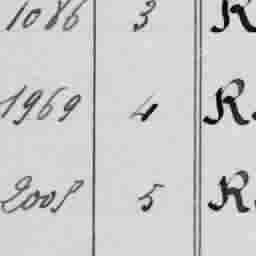 1086 3 K
1969 4 R.
2005 5 R.